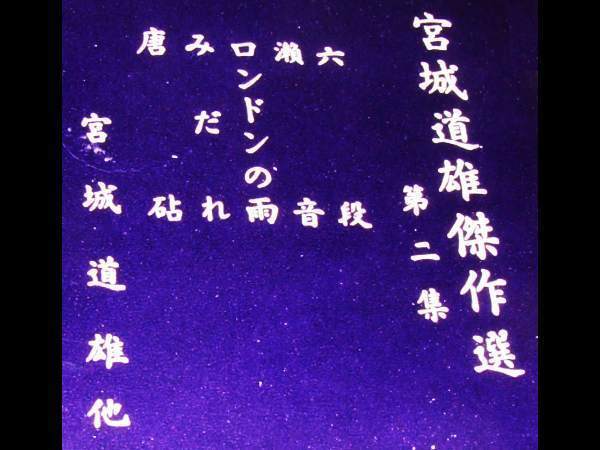 宮城道雄傑作選
第二集
六段
瀬音
ロンドンの雨
みだれ
唐砧
宮城道雄他